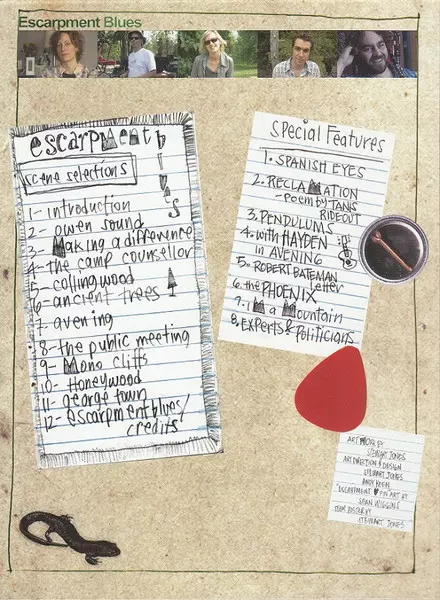 Escarpment Blues
escarpment
blues
scene selections
1- introduction
2- owen sound
3- Making a difference
4- the camp counsellor
5- collingwood
6- ancient trees
7- avening
8- the public meeting
9- Mono cliffs
10- Honeywood
11- george town
12- escarpment blues/
credits
Special Features
1. SPANISH EYES
2. RECLAMATION
- poem by TANIS
RIDEOUT
3. PENDULUMS
4. with HAYDEN
in AVENING
5. ROBERT BATEMAN
letter
6. the PHOENIX
7. I M a Mountain
8. EXPERTS & POLITICIANS
ARTWORK BY
STEWART JONES
ART DIRECTION & DESIGN
STEWART JONES
ANDY KEEN
"ESCARPMENT PIN ART BY
SEAN WIGGINS
POSTER BY
STEWART JONES